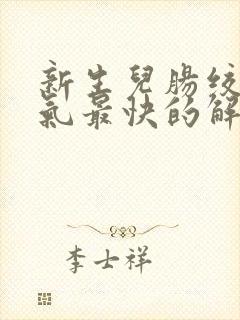 新生兒腸絞
氣最快的解
李士祥